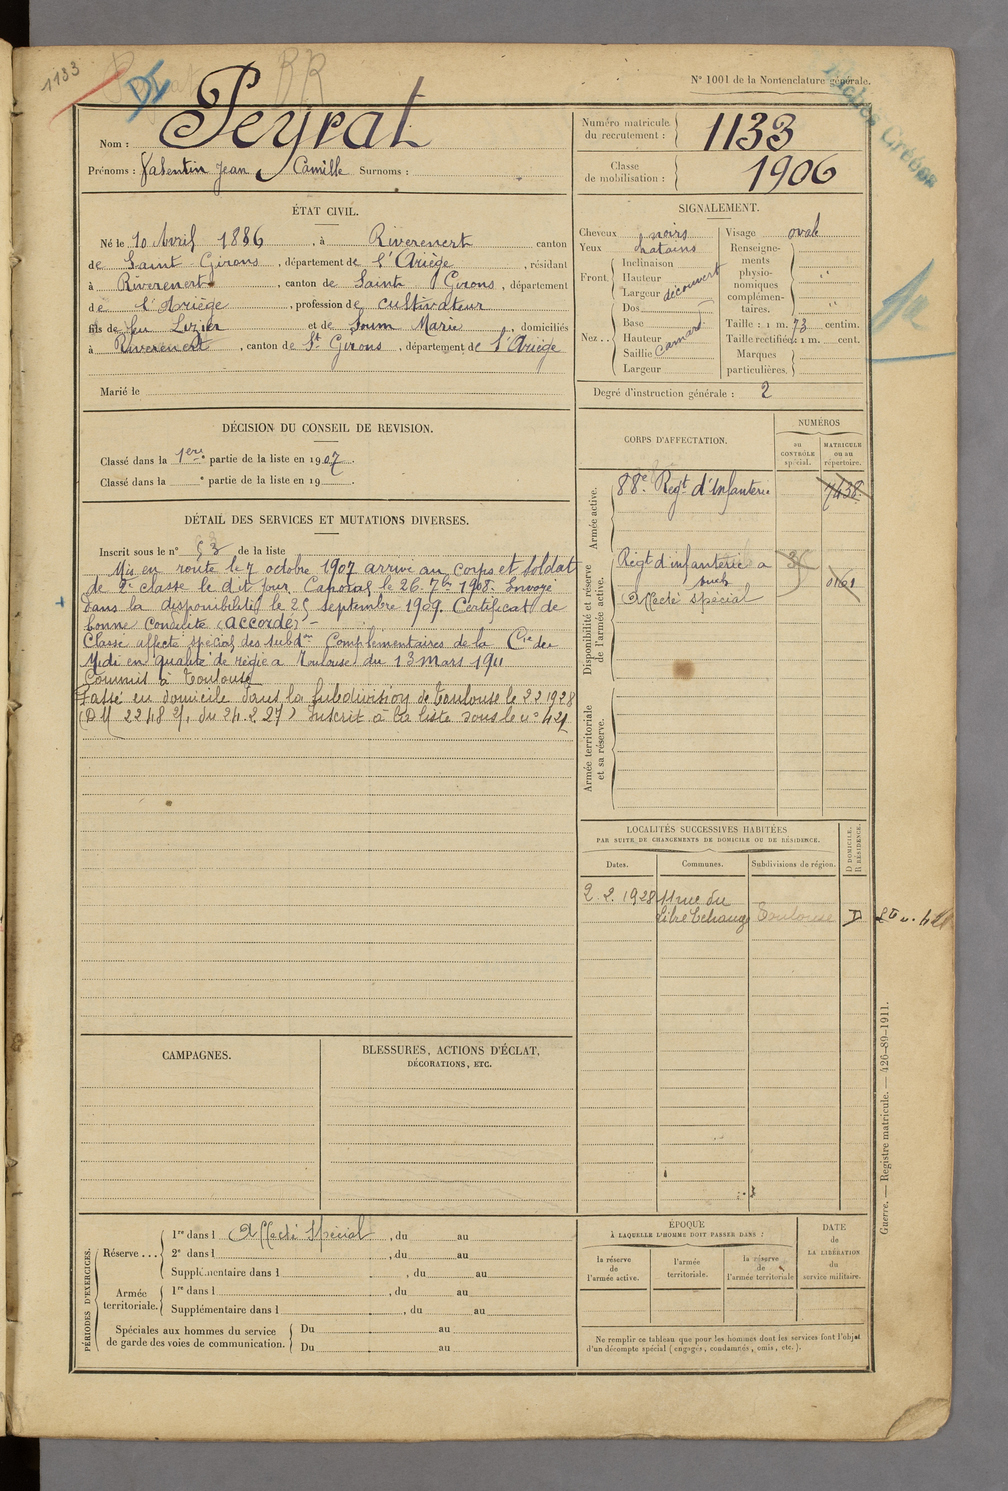 1133
BR
N° 1001 de la Nomenclature générale.
Nom : Peyrat
Prénoms : Valentin Jean Camille Surnoms :
Numéro matricule du recrutement : 1133
Classe de mobilisation : 1906
ÉTAT CIVIL.
Né le 10 Avril 1886, à Riverenert canton
de Saint Girons, département de l'Ariège, résidant
à Riverenert, canton de Saint Girons, département
de l'Ariège, profession de cultivateur
fils de feu Lizier et de Soum Marie, domiciliés
à Riverenert, canton de St Girons, département de l'Ariège
Marié le
SIGNALEMENT.
Cheveux noirs
Yeux chatains
Front. Inclinaison
Hauteur
Largeur découvert
Nez .. Dos
Base
Hauteur
Saillie camard
Largeur
Visage ovale
Renseignements physionomiques complémentaires.
Taille : 1 m. 73 centim.
Taille rectifiée : 1 m. cent.
Marques particulières.
Degré d'instruction générale : 2
DÉCISION DU CONSEIL DE REVISION.
Classé dans la 1ere partie de la liste en 1907.
Classé dans la e partie de la liste en 19 .
DÉTAIL DES SERVICES ET MUTATIONS DIVERSES.
Inscrit sous le n° 53 de la liste
Mis en route le 7 octobre 1907 arrivé au corps et soldat
de 2e classe le dit jour. Caporal le 26 7bre 1908. Envoyé
dans la disponibilité le 25 septembre 1909. Certificat de
bonne Conduite (accordé) -
Classé affecté spécial des subdons Complémentaires de la Cie du
Midi en qualité de régie a Toulouse du 13 mars 1911
Commis à Toulouse
Passé en domicile dans la subdivision de Toulouse le 2 2 1928
(DM 2248 2/1 du 24.2.27) Inscrit à la liste sous le n° 421
CORPS D'AFFECTATION.
NUMÉROS
au CONTRÔLE spécial.
MATRICULE ou au répertoire.
Armée active.
88e Regt d'Infanterie 7438
Disponibilité et réserve de l'armée active.
Regt d'infanterie a
Affecté spécial
Armée territoriale et sa réserve.
LOCALITÉS SUCCESSIVES HABITÉES
PAR SUITE DE CHANGEMENTS DE DOMICILE OU DE RÉSIDENCE.
Dates. Communes. Subdivisions de région. D DOMICILE. R RÉSIDENCE.
2.2.1928 11 rue du
Libre Echange Toulouse D
CAMPAGNES.
BLESSURES, ACTIONS D'ÉCLAT,
DÉCORATIONS, ETC.
PÉRIODES D'EXERCICES.
Réserve ... 1re dans l Affecté Spécial, du au
2e dans l , du au
Supplémentaire dans l , du au
Armée territoriale. 1re dans l , du au
Supplémentaire dans l , du au
Spéciales aux hommes du service de garde des voies de communication. Du au
Du au
ÉPOQUE
À LAQUELLE L'HOMME DOIT PASSER DANS :
la réserve de l'armée active.
l'armée territoriale.
la réserve de l'armée territoriale
DATE de LA LIBÉRATION du service militaire.
Ne remplir ce tableau que pour les hommes dont les services font l'objet
d'un décompte spécial (engagés, condamnés, omis, etc.).
Guerre. — Registre matricule. — 426-89-1911.